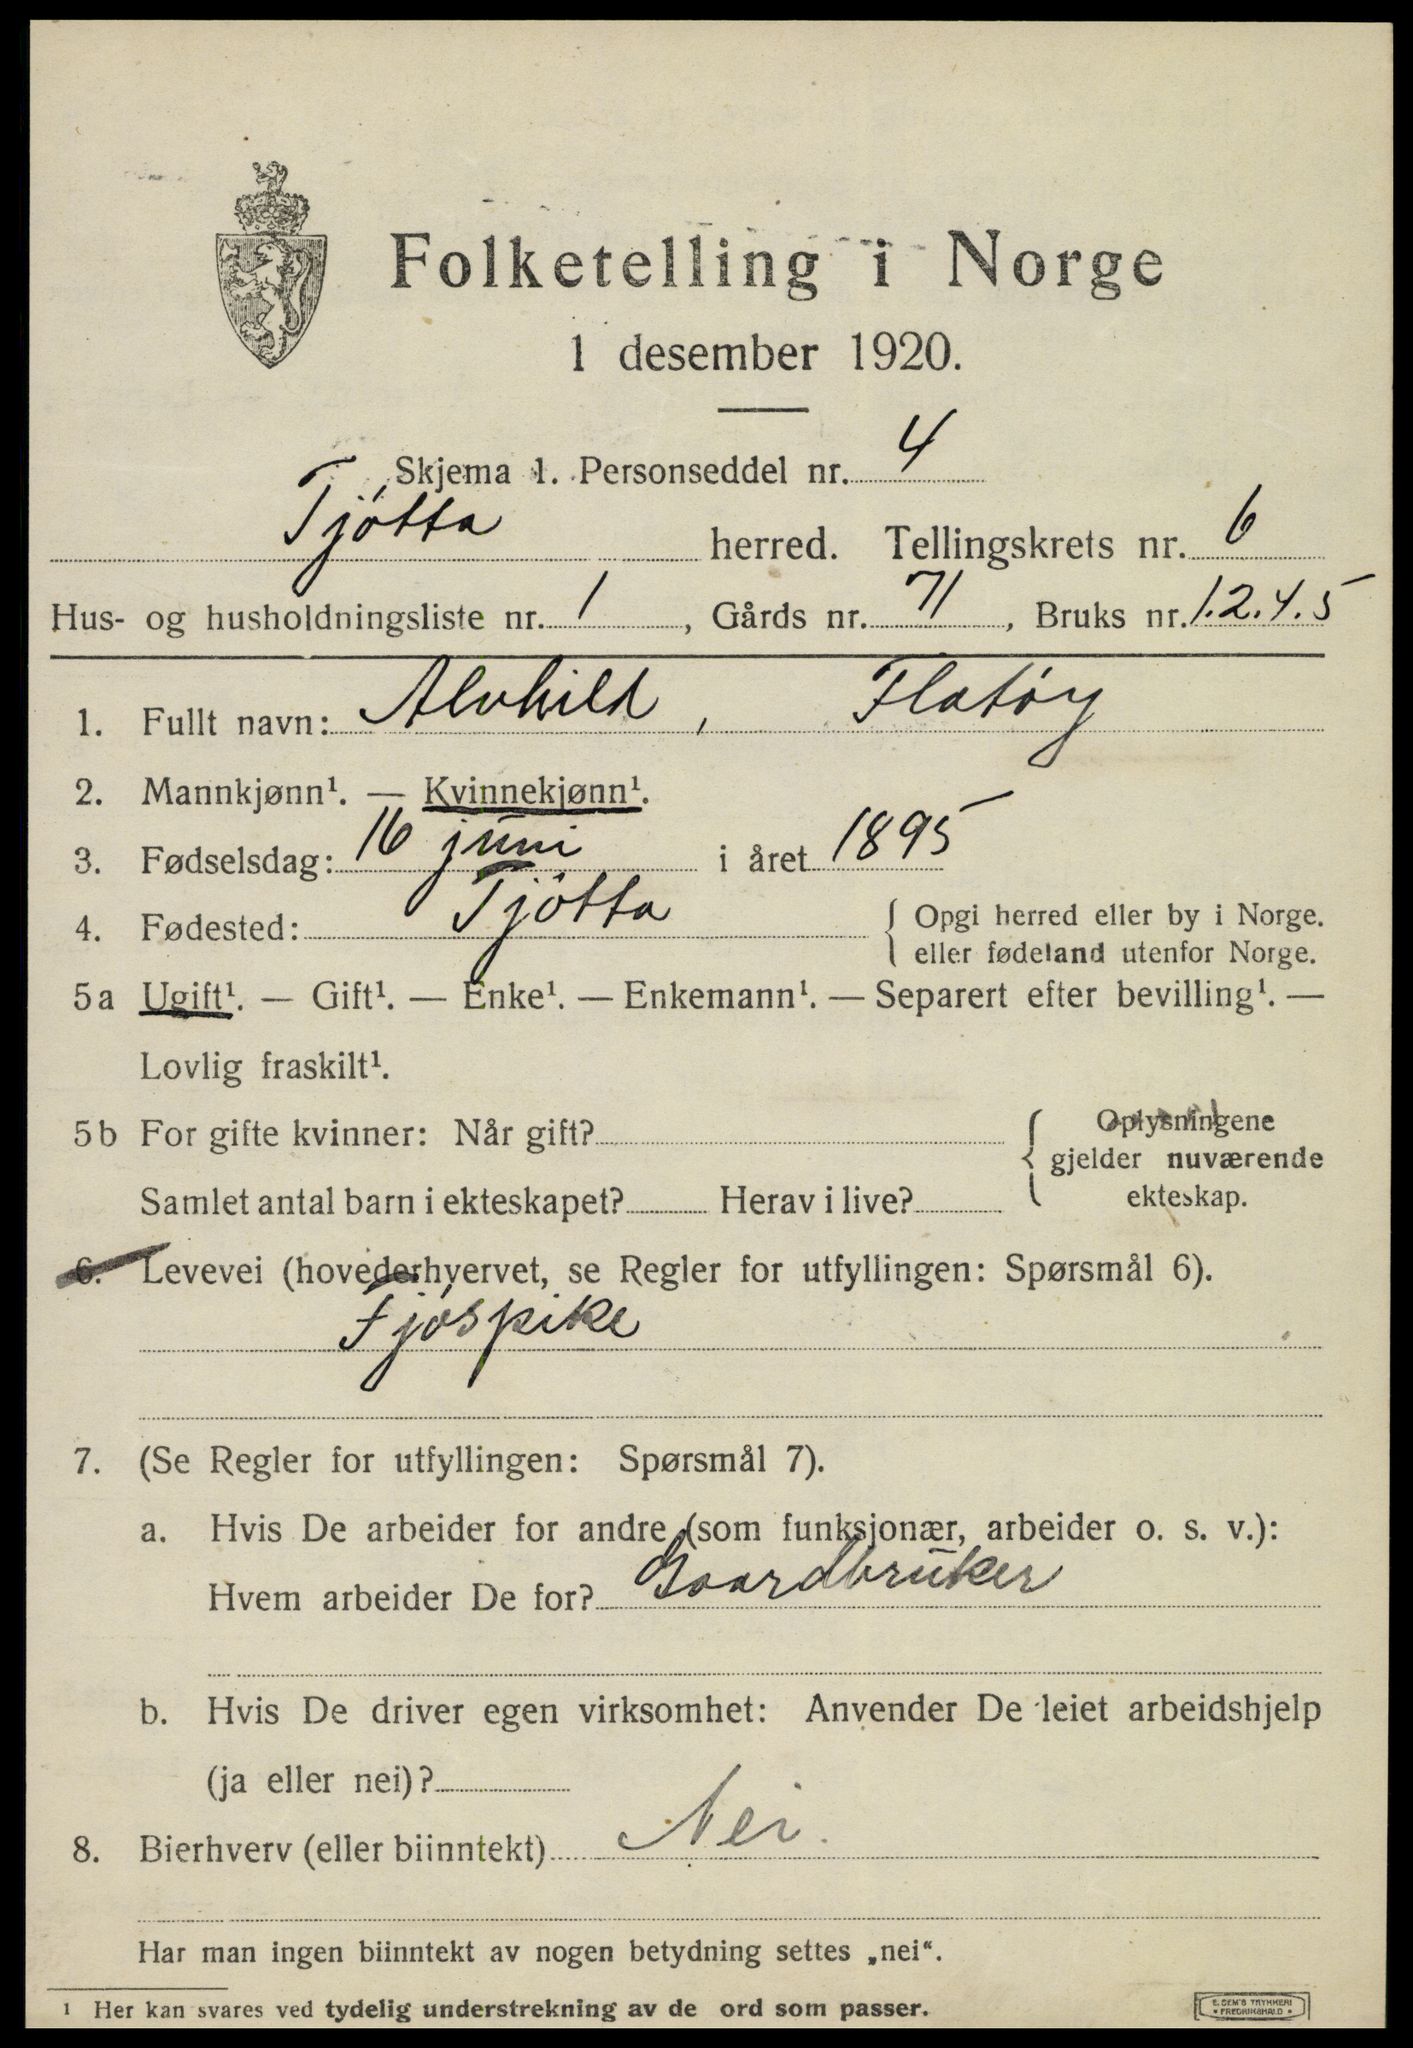 Folketelling i Norge
1 desember 1920.
Skjema 1. Personseddel nr. 4
Tjótta herred. Tellingskrets nr. 6
Hus- og husholdningsliste nr. 1, Gårds nr. 71, Bruks nr. 1.2.4.5
1. Fullt navn: Alvhild, Flatøy
2. Mannkjønn¹. — Kvinnekjønn¹.
3. Fødselsdag: 16 juni i året 1895
4. Fødested: Tjótta { Opgi herred eller by i Norge.
eller fødeland utenfor Norge.
5a Ugift¹. — Gift¹. — Enke¹. — Enkemann¹. — Separert efter bevilling¹. —
Lovlig fraskilt¹.
5b For gifte kvinner: Når gift? { Oplysningene
gjelder nuværende
Samlet antal barn i ekteskapet? Herav i live? ekteskap.
6. Levevei (hovederhvervet, se Regler for utfyllingen: Spørsmål 6).
Fjóspike
7. (Se Regler for utfyllingen: Spørsmål 7).
a. Hvis De arbeider for andre (som funksjonær, arbeider o. s. v.):
Hvem arbeider De for? Gaardbruker
b. Hvis De driver egen virksomhet: Anvender De leiet arbeidshjelp
(ja eller nei)?
8. Bierhverv (eller biinntekt) Nei.
Har man ingen biinntekt av nogen betydning settes „nei“.
¹ Her kan svares ved tydelig understrekning av de ord som passer.
E. SEM'S TRYKKERI
FREDRIKSHALD